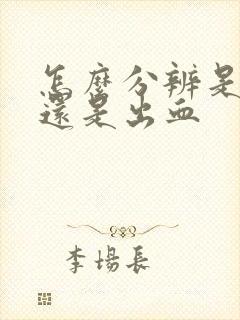 怎麼分辨是
還是出血
李場長